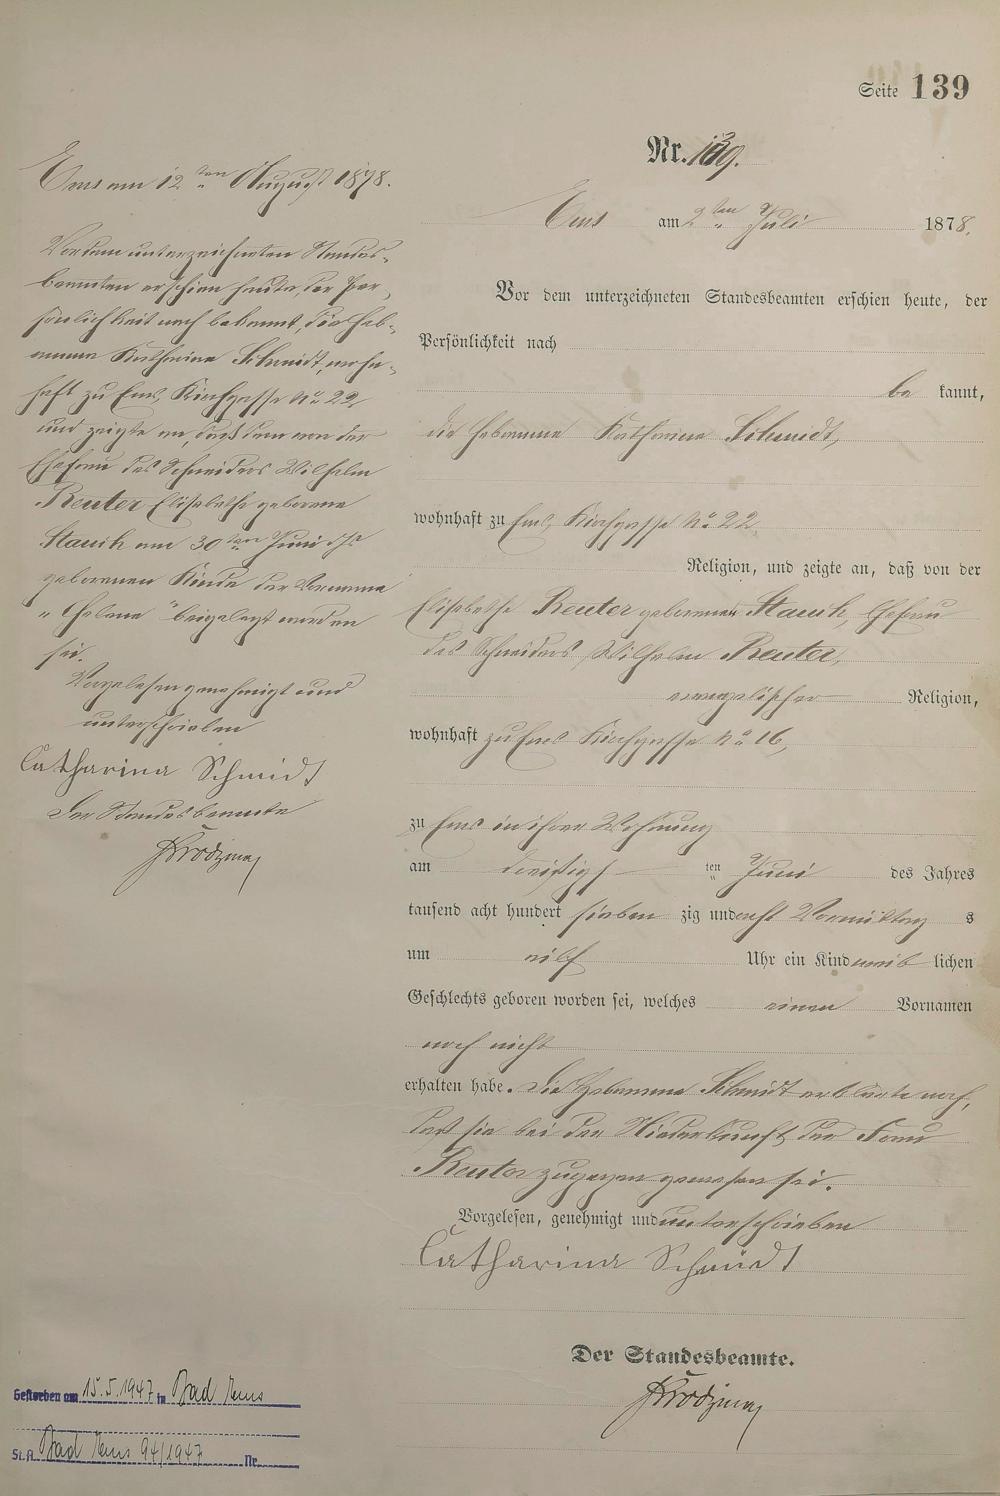 Seite 139
Nr. 139.
Ems am 2ten Juli 1878.
Vor dem unterzeichneten Standesbeamten erschien heute, der
Persönlichkeit nach
be kannt,
die Hebamme Katharina Schmidt,
wohnhaft zu Ems, Kirchgasse No 22
Religion, und zeigte an, daß von der
Elisabethe Reuter geborenen Stauch, Ehefrau
des Schneiders Wilhelm Reuter,
evangelischer Religion,
wohnhaft zu Ems Kirchgasse No 16,
zu Ems in ihrer Wohnung
am dreißigsten Juni des Jahres
tausend acht hundert sieben zig und acht Vormittag s
um elf Uhr ein Kind weib lichen
Geschlechts geboren worden sei, welches einen Vornamen
noch nicht
erhalten habe. Die Hebamme Schmidt erklärte noch,
daß sie bei der Niederkunft der Frau
Reuter zugegen gewesen sei.
Vorgelesen, genehmigt und unterschrieben
Catharina Schmidt
Der Standesbeamte.
Ems am 12ten August 1878.
Vor dem unterzeichneten Standes-
beamten erschien heute, der Per-
sönlichkeit nach bekannt, die Heb-
amme Katharina Schmidt, wohn-
haft zu Ems, Kirchgasse No 22
und zeigte an, daß dem von der
Ehefrau des Schneiders Wilhelm
Reuter Elisabethe geborene
Stauch am 30ten Juni d. Js
geborenen Kinde der Vorname
"Helene" beigelegt worden
sei.
Vorgelesen genehmigt und
unterschrieben
Catharina Schmidt
Der Standesbeamte
Gestorben am 15.5.1947 in Bad Ems
St.A. Bad Ems 94/1947 Nr.